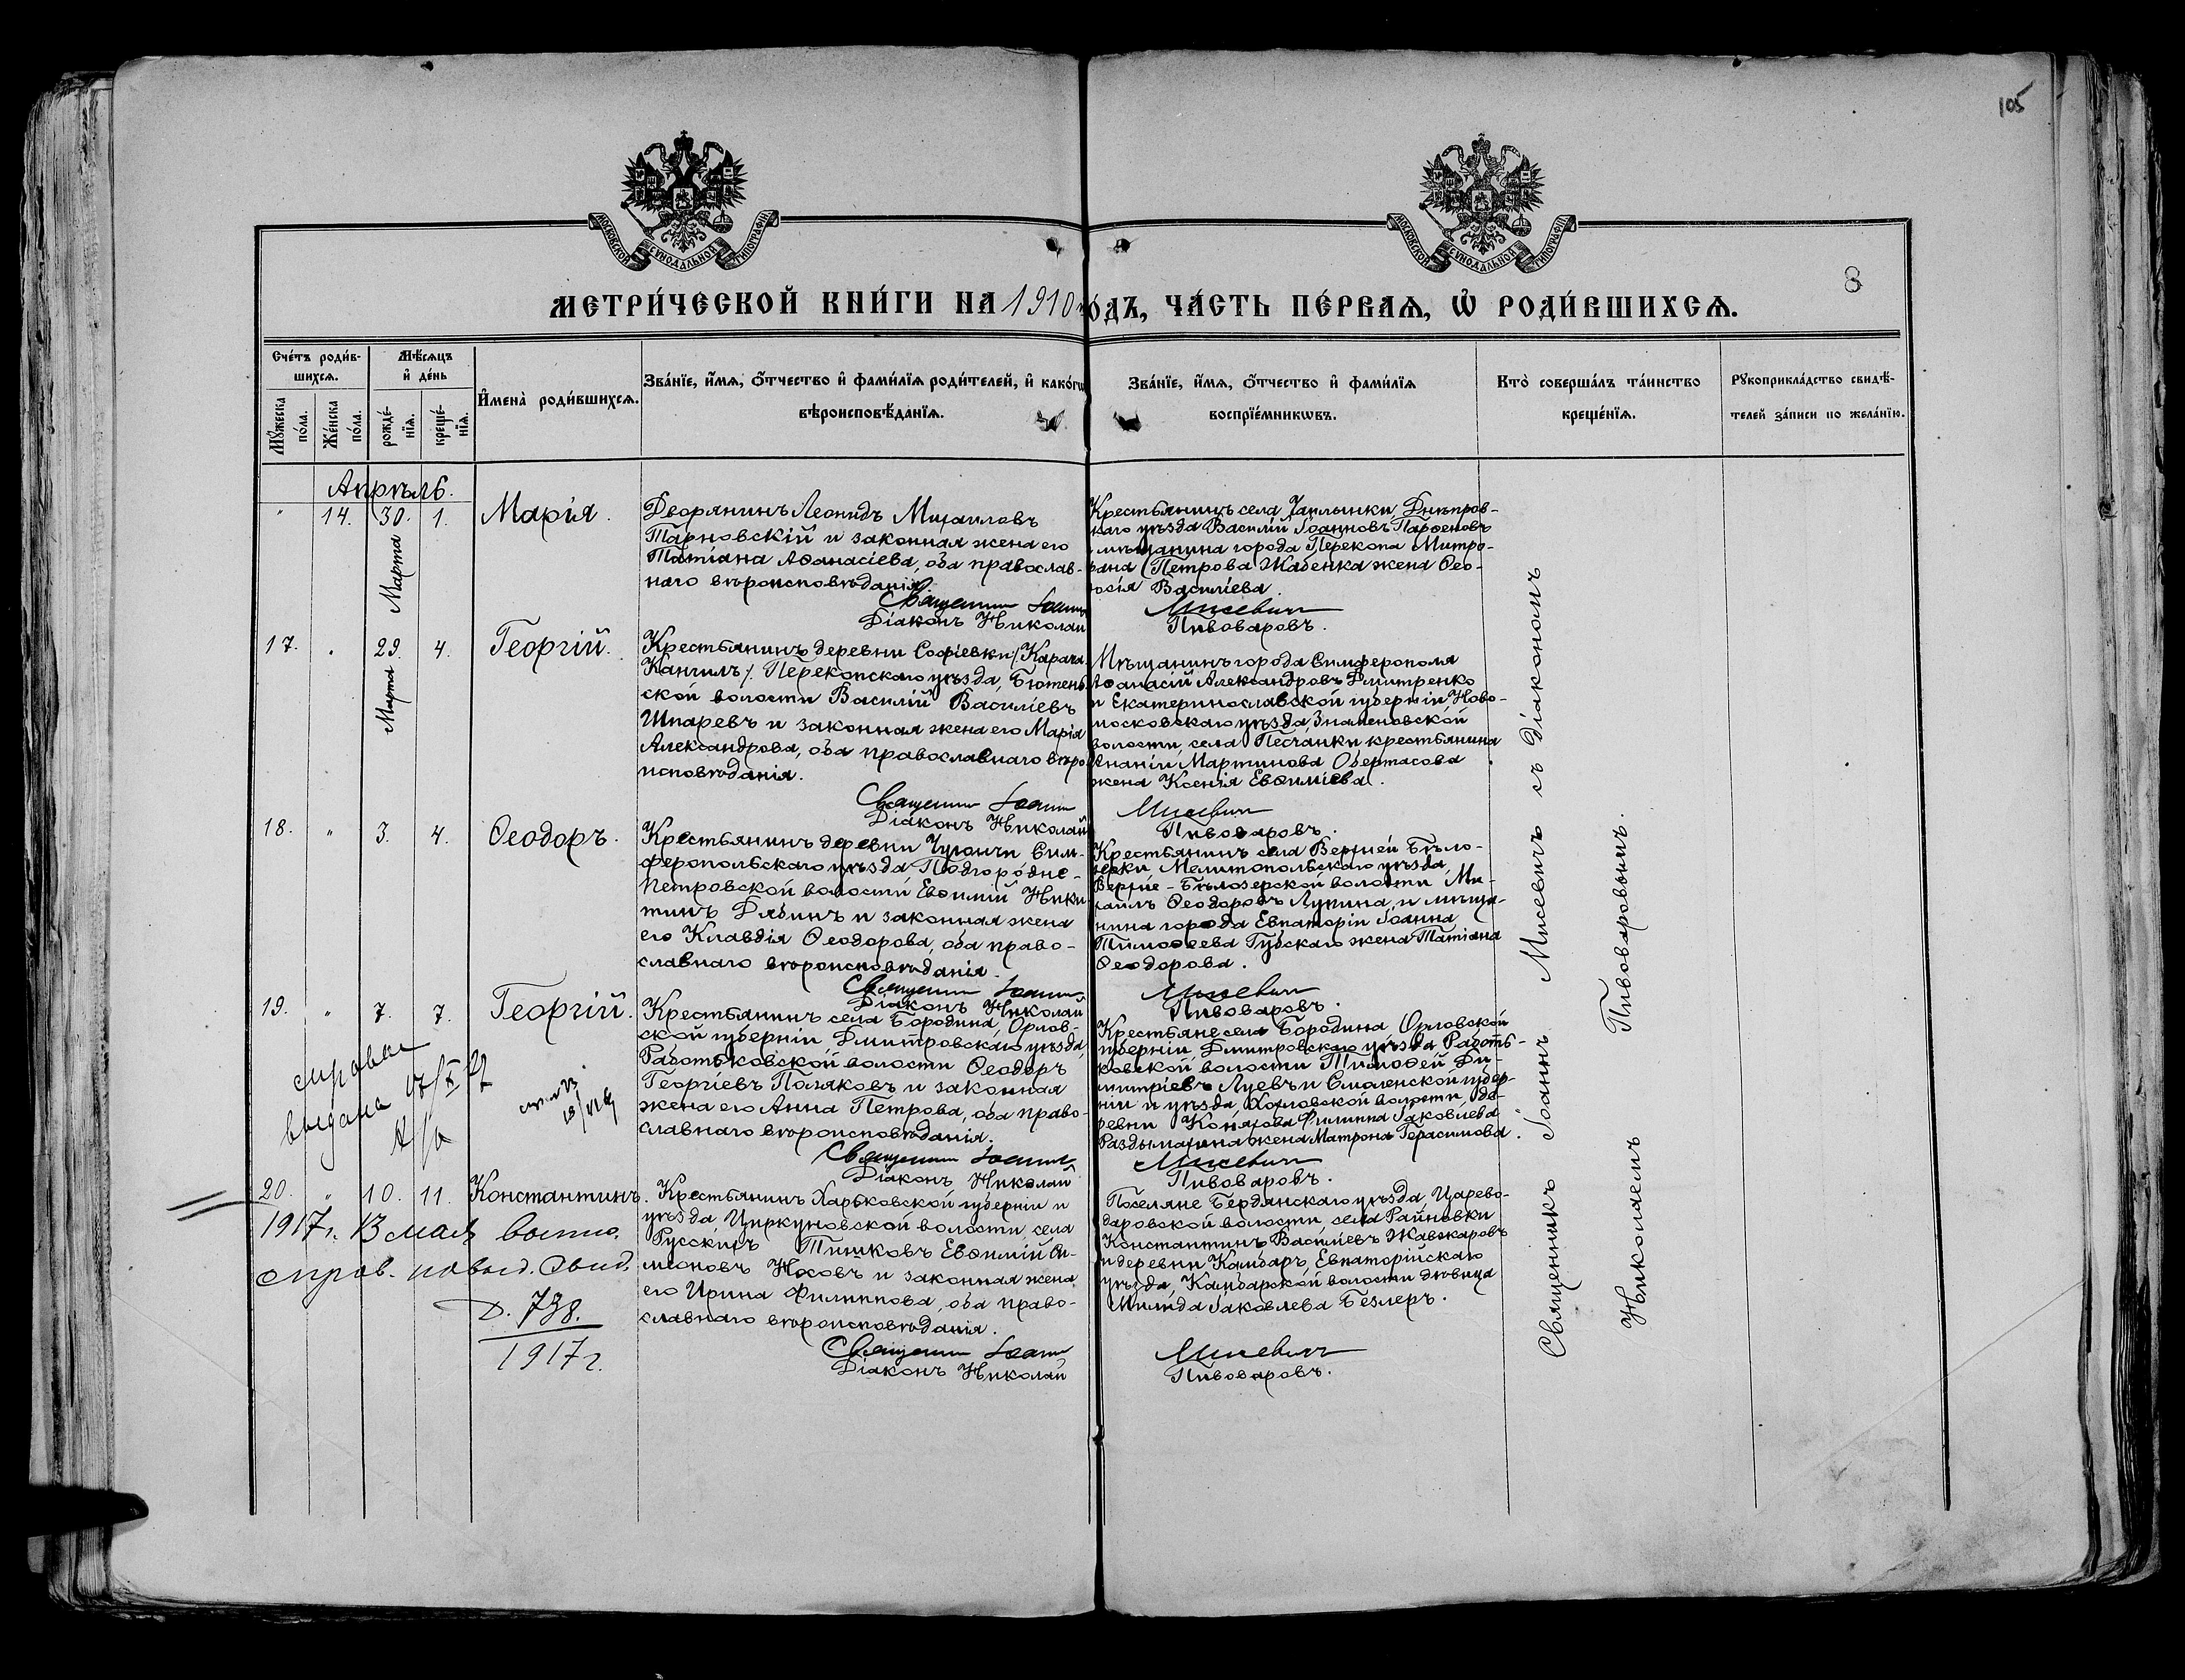 105
МОСКОВСКОЙ СѴНОДАЛЬНОЙ ТИПОГРАФІИ
МОСКОВСКОЙ СѴНОДАЛЬНОЙ ТИПОГРАФІИ
8
МЕТРИ́ЧЕСКОЙ КНИ́ГИ НА 1910 го́дъ, ЧА́СТЬ ПЕ́РВАѦ, Ѡ҆ РОДИ́ВШИХСѦ.
Сче́тъ роди́в-
шихсѧ.
Мѣ́сѧцъ
и҆ де́нь
Мꙋ́жеска
по́ла.
Же́нска
по́ла.
рожде́-
нїѧ.
креще́-
нїѧ.
И҆мена̀ роди́вшихсѧ.
Зва́нїе, и҆́мѧ, ѻ҆́тчество и҆ фами́лїѧ роди́телей, и҆ како́гѡ
вѣроисповѣ́данїѧ.
Зва́нїе, и҆́мѧ, ѻ҆́тчество и҆ фами́лїѧ
воспрїе́мникѡвъ.
Кто̀ соверша́лъ та́инство
креще́нїѧ.
Рꙋкоприкла́дство свидѣ́-
телей за́писи по жела́нїю.
Апрѣль
" 14. 30. 1. Марія.
Марта
Дворянинъ Леонидъ Михаиловъ
Тарновскій и законная жена его
Татіана Аѳанасіева, оба православ-
наго вѣроисповѣданія.
Священникъ Іоаннъ
Діаконъ Николай
Крестьянинъ села Чаплынки, Днѣпров-
скаго уѣзда Василій Іоанновъ Парѳеновъ
и мѣщанина города Перекопа Митро-
фана Петрова Жабенка жена Ѳео-
досія Василіева.
Мисевичъ
Пивоваровъ.
17. . 29. 4. Георгій.
Марта
Крестьянинъ деревни Софіевки /Карача-
Кангилъ/. Перекопскаго уѣзда, Бютень-
ской волости Василій Василіевъ
Шпаревъ и законная жена его Марія
Александрова, оба православнаго вѣро-
исповѣданія.
Священникъ Іоаннъ
Діаконъ Николай
Мѣщанинъ города Симферополя
Аѳанасій Александровъ Дмитренко
и Екатеринославской губерніи Ново-
московскаго уѣзда, Знаменовской
волости, села Песчанки крестьянина
Ананіи Мартинова Обертасова
жена Ксенія Евѳиміева.
Мисевичъ
Пивоваровъ.
18. " 3. 4. Ѳеодоръ.
Крестьянинъ деревни Чуюнчи Сим-
феропольскаго уѣзда Подгородне-
Петровской волости Евѳимій Ники-
тинъ Дябинъ и законная жена
его Клавдія Ѳеодорова, оба право-
славнаго вѣроисповѣданія.
Священникъ Іоаннъ
Діаконъ Николай
Крестьянинъ села Верхней Бѣло-
зерки, Мелитопольскаго уѣзда,
Верхне-Бѣлозерской волости Ми-
хаилъ Ѳеодоровъ Лупина и мѣща-
нина города Евпаторіи Іоанна
Тимоѳеева Губскаго жена Татіана
Ѳеодорова.
Мисевичъ
Пивоваровъ.
19. " 7. 7. Георгій.
выдана
Крестьянинъ села Бородина, Орлов-
ской губерніи Дмитровскаго уѣзда,
Работьковской волости Ѳеодоръ
Георгіевъ Поляковъ и законная
жена его Анна Петрова, оба право-
славнаго вѣроисповѣданія.
Священникъ Іоаннъ
Діаконъ Николай
Крестьяне села Бородина, Орловской
губерніи, Дмитровскаго уѣзда Работь-
ковской волости Тимоѳей Ди-
митріевъ Луевъ и Смоленской губер-
ніи и уѣзда, Хохловской волости, де-
ревни Коняхова Филиппа Іаковлева
Раздымахина жена Матрона Герасимова.
Мисевичъ
Пивоваровъ.
20. " 10. 11. Константинъ.
1917 г. 13 мая
справ. повыд. свид.
д. 738.
1917 г.
Крестьянинъ Харьковской губерніи и
уѣзда, Циркуновской волости, села
Русскихъ Тишковъ Евѳимій Си-
меоновъ Носовъ и законная жена
его Ирина Филиппова, оба право-
славнаго вѣроисповѣданія.
Священникъ Іоаннъ
Діаконъ Николай
Поселяне Бердянскаго уѣзда, Царево-
даровской волости, села Райновки
Константинъ Василіевъ Жавжаровъ
и деревни Камбаръ, Евпаторійскаго
уѣзда, Камбарской волости дѣвица
Милида Іаковлева Безлеръ.
Мисевичъ
Пивоваровъ.
Священникъ Іоаннъ Мисевичъ съ Діакономъ
Николаемъ Пивоваровымъ.